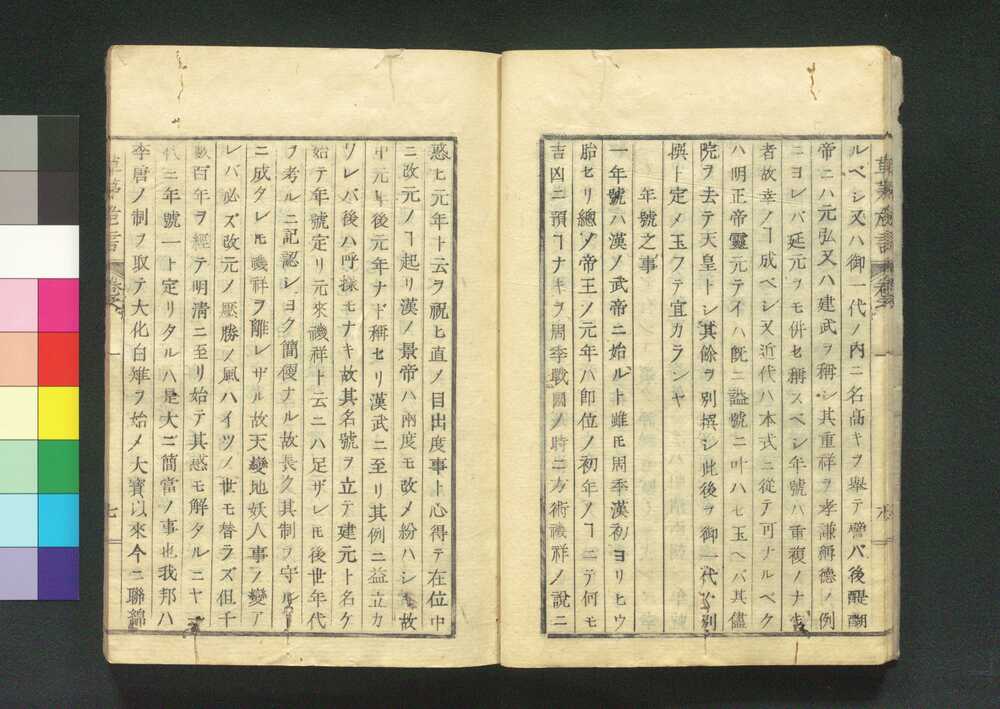 ルベシ又ハ御一代ノ内ニ名高キヲ擧テ譬バ後醍醐
帝ニハ元弘又ハ建武ヲ稱シ其重祥ヲ孝謙稱德ノ例
ニヨレバ延元ヲモ併セ稱スベシ年號ハ重複ノナキ
者故幸ノヿ成ベシ又近代ハ本式ニ從テ可ナルベク
ハ明正帝靈元テイハ既ニ謚號ニ叶ハセ玉ヘバ其儘
院ヲ去テ天皇トシ其餘ヲ別撰シ此後ヲ御一代〻別
撰ト定メ玉フテ宜カランヤ
年號之事
一年號ハ漢ノ武帝ニ始ルト雖モ周季漢初ヨリヒウ
胎セリ總ノ帝王ノ元年ハ即位ノ初年ノヿニテ何モ
吉凶ニ預ヿナキヲ周季戰國ノ時ニ方術禨祥ノ說ニ
惑ヒ元年ト云ヲ祝ヒ直ノ目出度事ト心得テ在位中
ニ改元ノヿ起リ漢ノ景帝ハ兩度モ改メ紛ハシキ故
中元年後元年ナド稱セリ漢武ニ至リ其例ニ益立カ
ソレバ後ハ呼樣モナキ故其名號ヲ立テ建元ト名ケ
始テ年號定リ元來禨祥ト云ニハ足ザレモ後世年代
ヲ考ルニ記認シヨク簡便ナル故長ク其制ヲ守ル
ニ成タレモ禨祥ヲ離レザル故天變地妖人事ノ變ア
レバ必ズ改元ノ壓勝ノ風ハイツノ世モ替ラズ但千
數百年ヲ經テ明清ニ至リ始テ其惑モ解タルニヤ一
代ニ年號一ト定リタルハ是大ニ簡當ノ事也我邦ハ
李唐ノ制ヲ取テ大化白雉ヲ始メ大寳以來今ニ聯綿
七